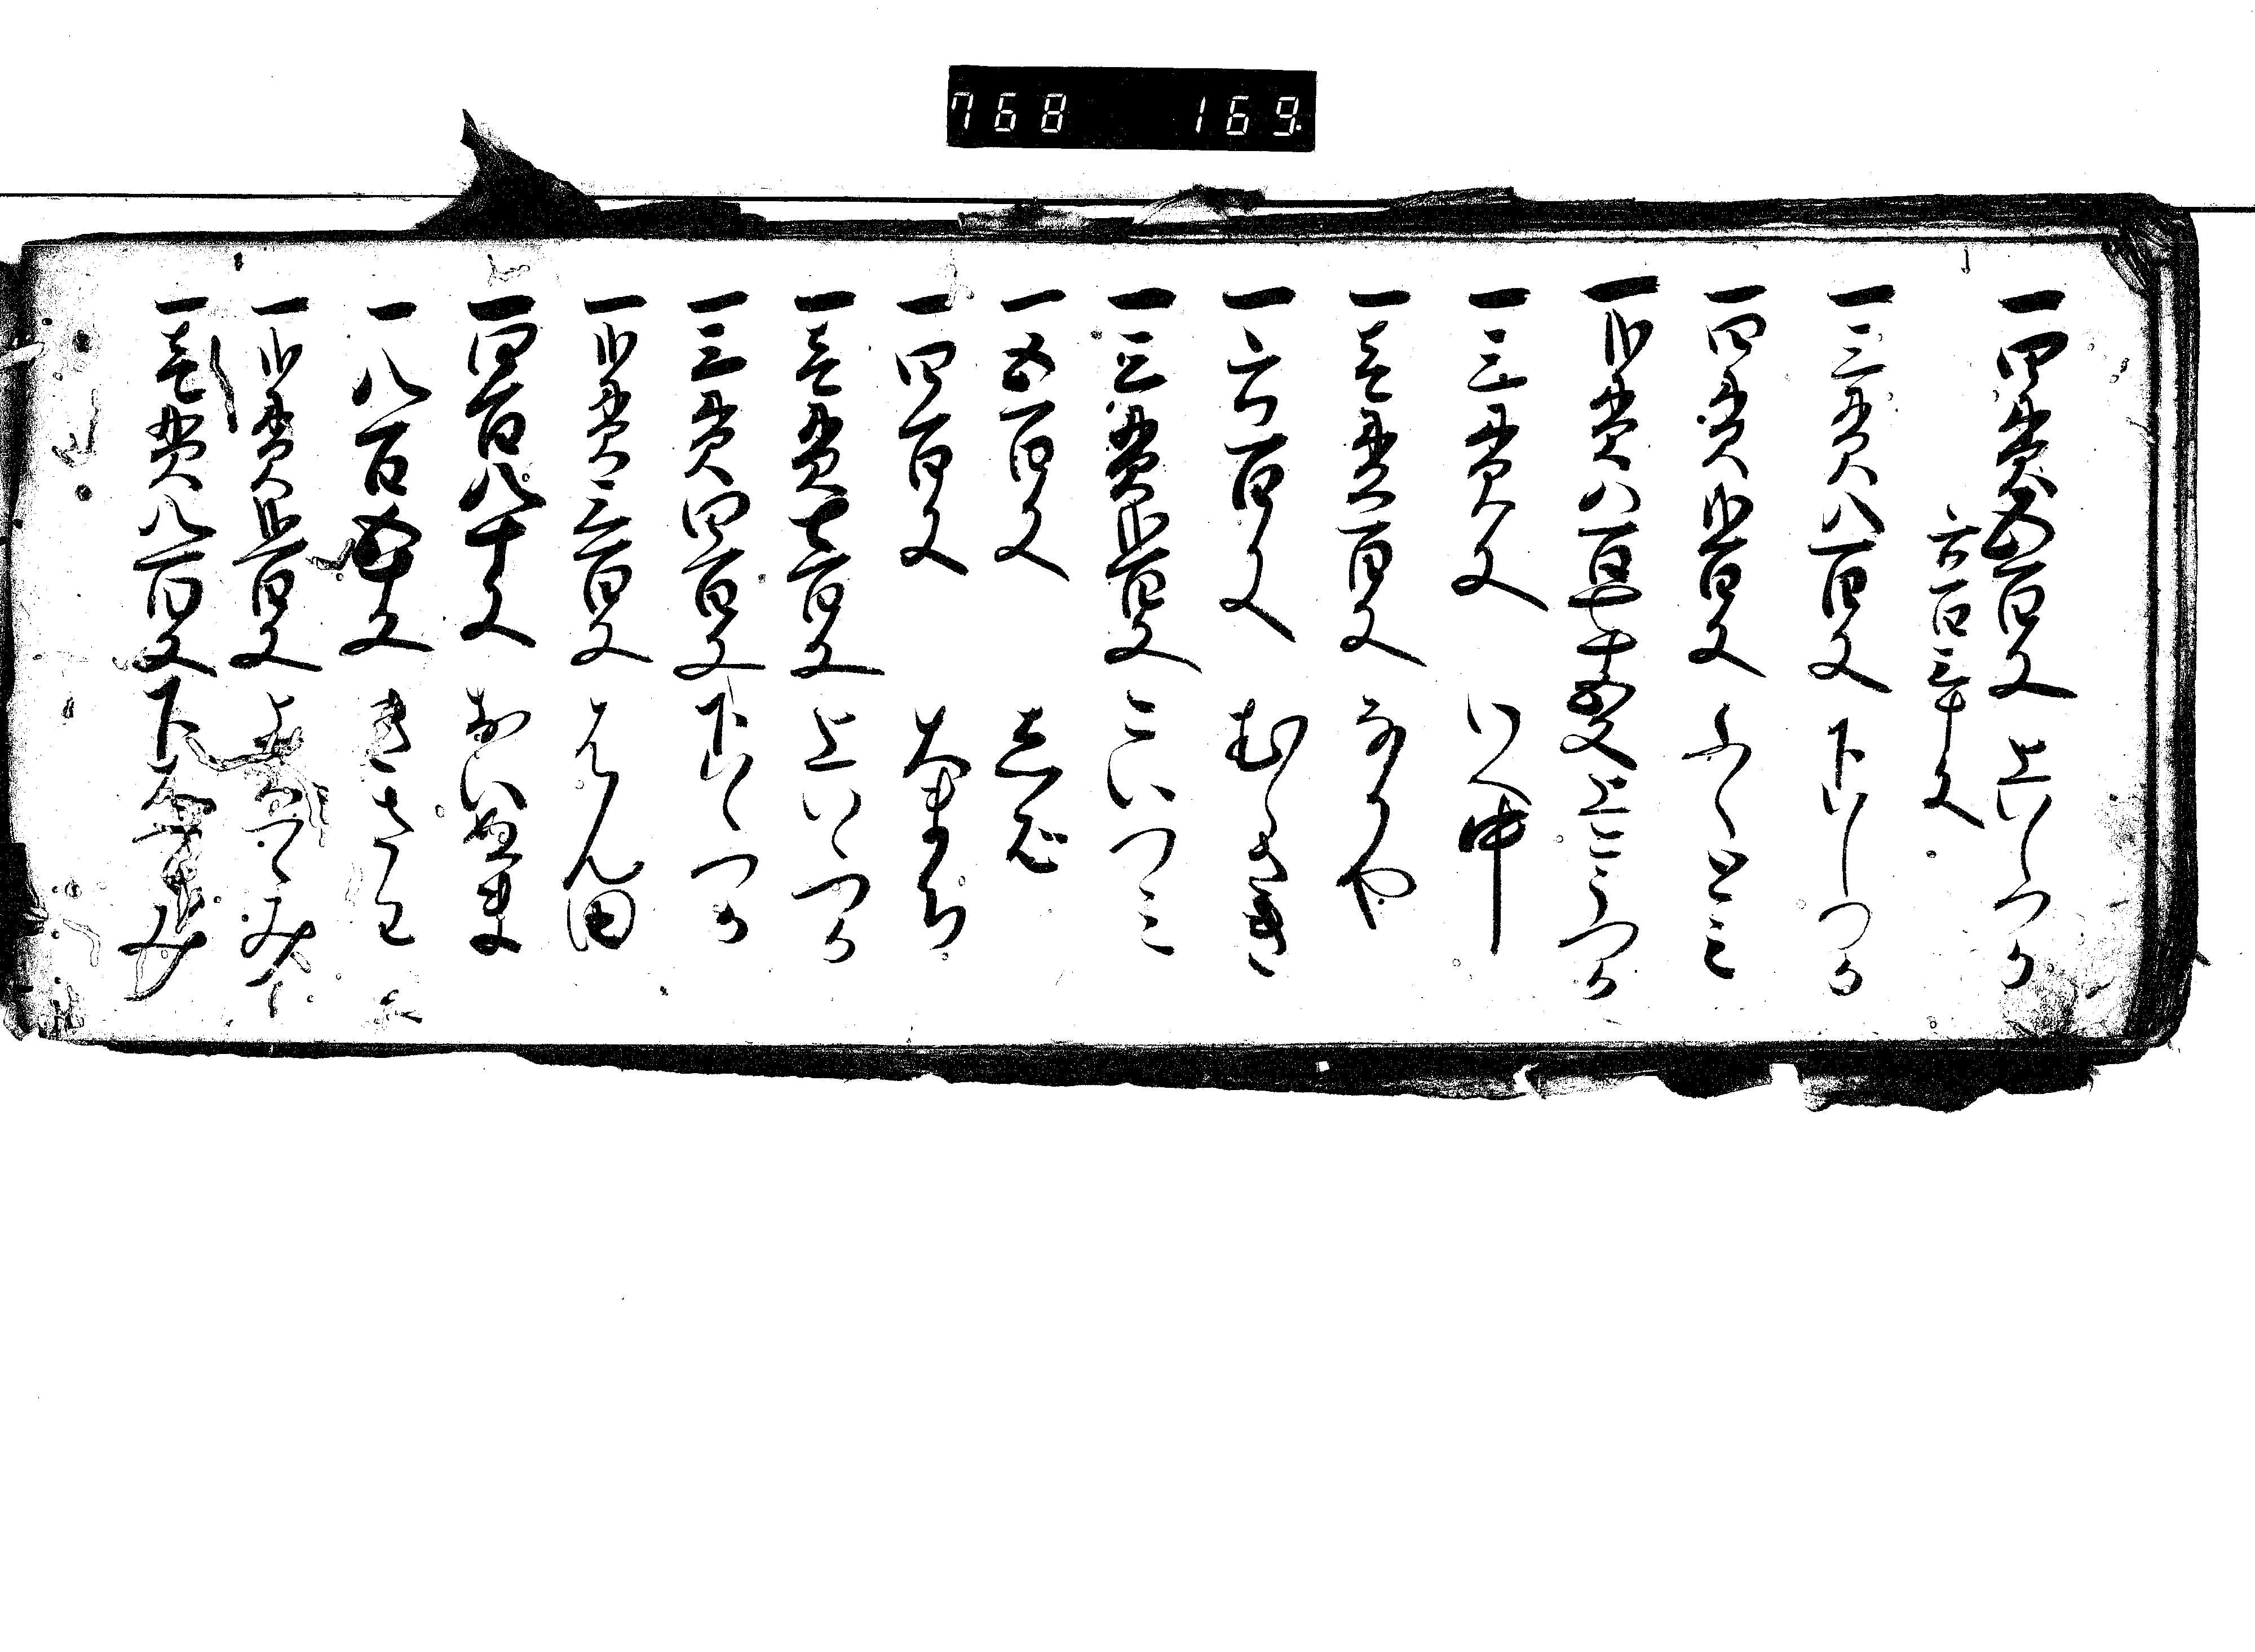 768 169
一四貫五百文 上いしつか
六百三十文
一三貫八百文 下いしつか
一四貫弐百文 ふくとミ
一弐貫八百七十五文 上こうつか
一三貫文 いへ中
一壱貫百文 なかや
一六百文 むくのき
一三貫弐百文 こいつミ
一五百文 志水
一四百文 大まち
一壱貫七百文 上いくつか
一三貫四百文 下いくつか
一弐貫三百文 はん田
一四百八十文 おいぬま
一八百五十文 きさら
一弐貫弐百文 上
一壱貫八百文 下